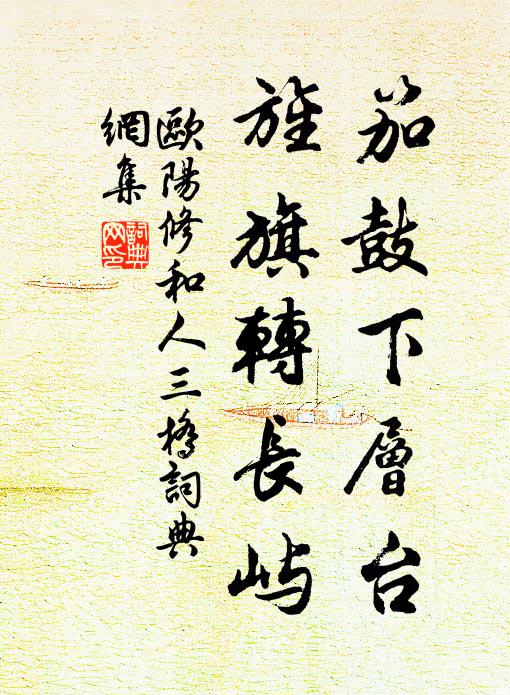 笳鼓下層台
旌旗轉長屿
歐陽修和人三橋詞典
網集
詞典網印